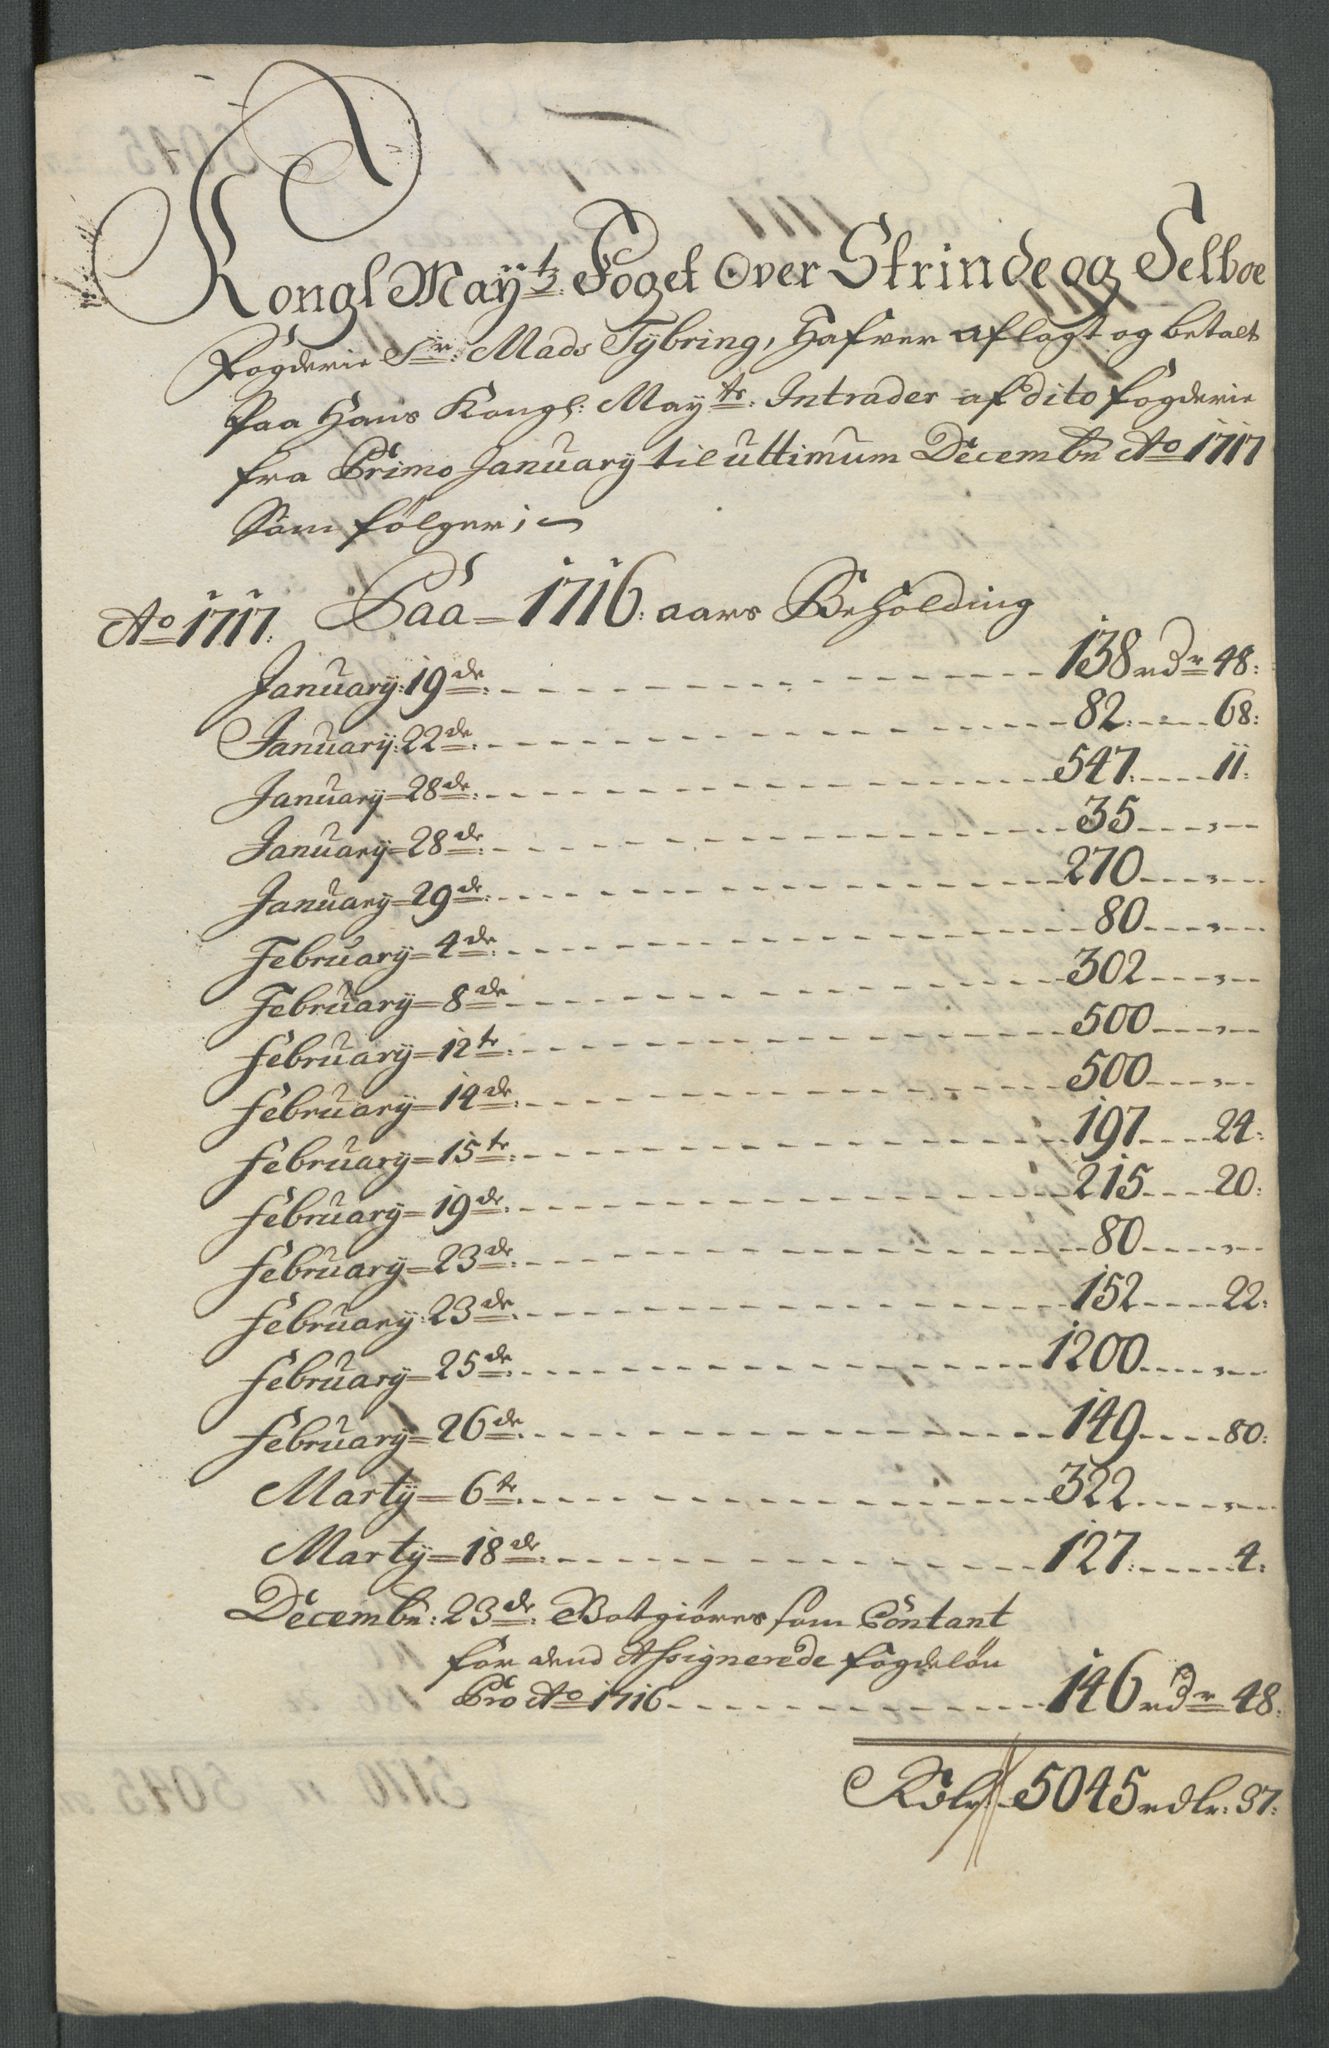 Kongl Mayts Foget Over Strinde og Selboe
Fogderie Sr: Mads Tÿbring, Hafver aflagt og betalt
Paa Hans Kongl: Mayts: Intrader af dito fogderie
fra Primo January til ultimum Decembr Ao 1717
Som følger;
Ao 1717: Paa = 1716: aars Beholding
January: 19de: 138 rdr 48:
January: 22de: 82: 68:
January = 28de: 547: 11:
January = 28de: 35 "
January = 29de: 270 "
February = 4de: 80 "
February = 8de 302 "
February = 12te: 500 "
February = 14de: 500 "
February = 15te: 197 24:
February = 19de: 215 20:
February = 23de: 80 "
February: 23de: 152 22:
February = 25de: 1200 "
February = 26de: 149 80:
Martÿ = 6te: 322 "
Martÿ = 18de: 127: 4:
Decembr: 23de: Botgiøres som Contant
for dend Assignerede fogdeløn
Pro Ao 1716 146 rdr 48:
Rdlr: 5045 rdlr: 37: